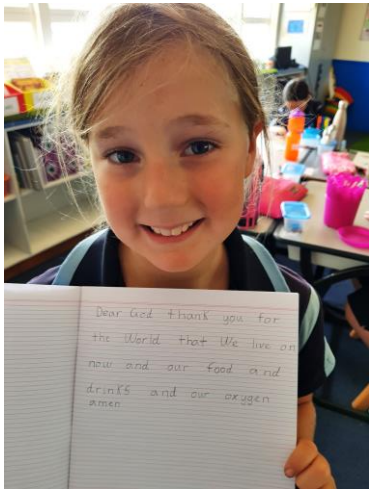 Dear God thank you for
the World that We live on
now and our food and
drinks and our oxygen
amen